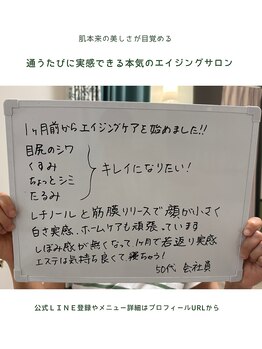 肌本来の美しさが目覚める
通うたびに実感できる本気のエイジングサロン
1ヶ月前からエイジングケアを始めました!!
目尻のシワ
くすみ
ちょっとシミ
たるみ
キレイになりたい!
レチノールと筋膜リリースで顔が小さく
白さ実感、ホームケアも頑張っています
しぼみ感が無くなって1ヶ月で若返り実感
エステは気持ち良くて寝ちゃう!
50代 会社員
公式LINE登録やメニュー詳細はプロフィールURLから